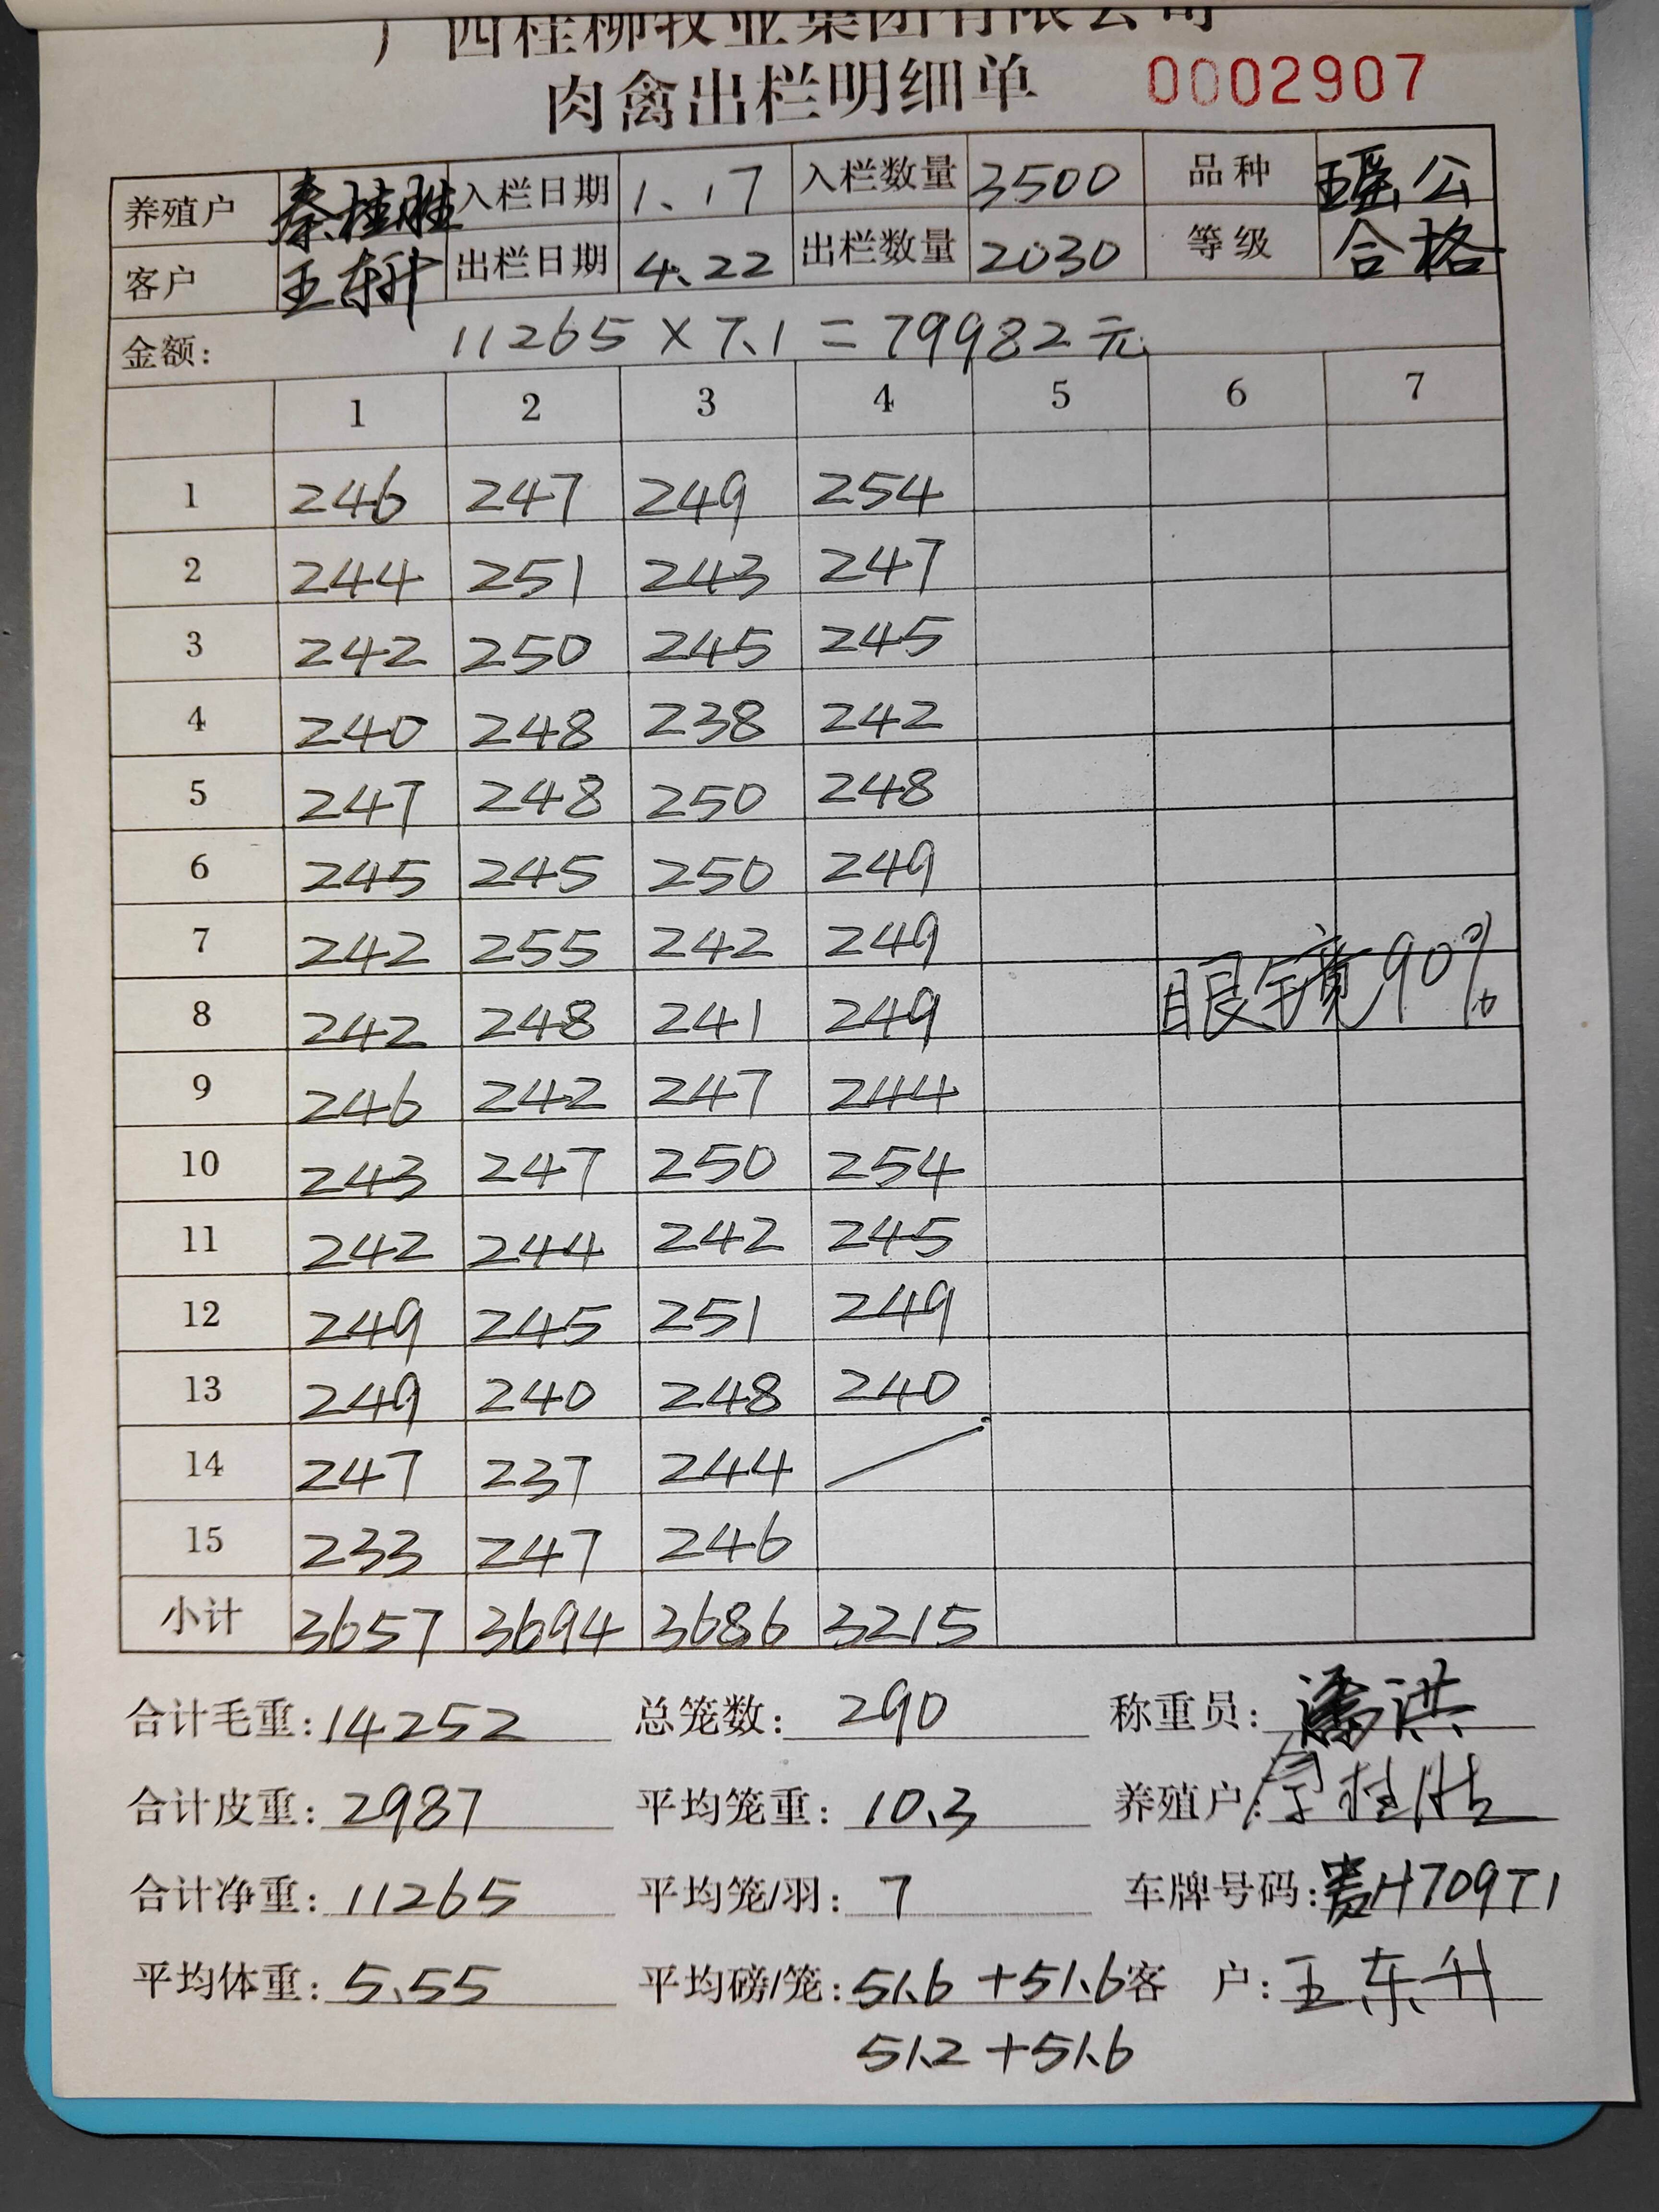 广西桂柳牧业集团有限公司
肉禽出栏明细单 0002907
养殖户 秦桂胜 入栏日期 1.17 入栏数量 3500 品种 瑶公
客户 王东升 出栏日期 4.22 出栏数量 2030 等级 合格
金额: 11265×7.1=79982元
1 2 3 4 5 6 7
1 246 247 249 254
2 244 251 243 247
3 242 250 245 245
4 240 248 238 242
5 247 248 250 248
6 245 245 250 249
7 242 255 242 249
8 242 248 241 249 眼 90%
9 246 242 247 244
10 243 247 250 254
11 242 244 242 245
12 249 245 251 249
13 249 240 248 240
14 247 237 244
15 233 247 246
小计 3657 3694 3686 3215
合计毛重: 14252 总笼数: 290 称重员: 潘洪
合计皮重: 2987 平均笼重: 10.3 养殖户: 桂胜
合计净重: 11265 平均笼/羽: 7 车牌号码: 贵H709T1
平均体重: 5.55 平均磅/笼: 51.6+51.6 客 户: 王东升
51.2+51.6